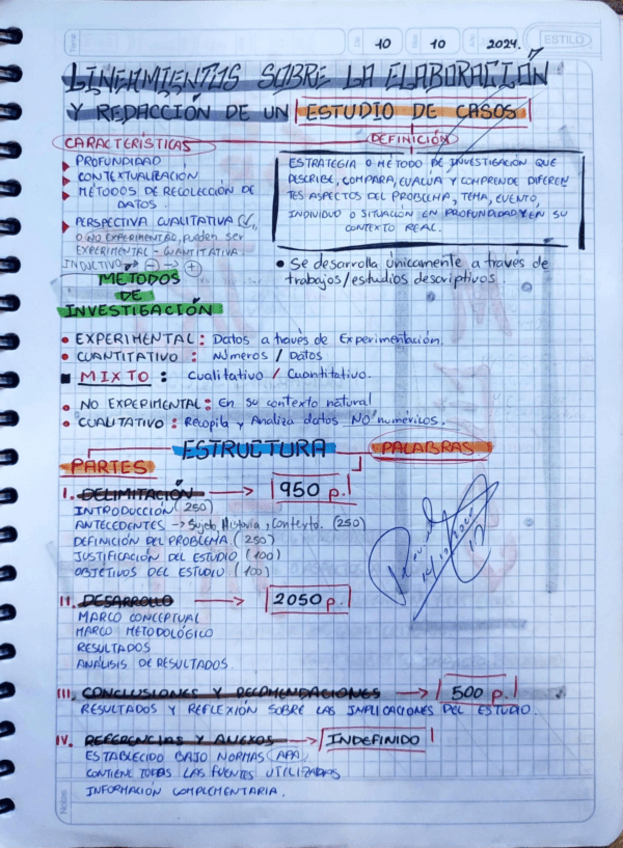 Tema
De
10
Mes
10
Año
2024.
ESTILO
LINEAMIENTOS SOBRE LA ELABORACIÓN
Y REDACCIÓN DE UN ESTUDIO DE CASOS
CARACTERÍSTICAS
PROFUNDIDAD
CONTEXTUALIZACIÓN
MÉTODOS DE RECOLECCIÓN DE
DATOS.
PERSPECTIVA CUALITATIVA
O NO EXPERIMENTAL, pueden ser
EXPERIMENTAL - CUANTITATIVA.
INDUCTIVO → - → +
DEFINICIÓN
ESTRATEGIA O MÉTODO DE INVESTIGACIÓN QUE
DESCRIBE, COMPARA, EVALÚA Y COMPRENDE DIFEREN
TES ASPECTOS DEL PROBLEMA, TEMA, EVENTO,
INDIVIDUO O SITUACIÓN EN PROFUNDIDAD Y EN SU
CONTEXTO REAL.
• Se desarrolla únicamente a través de
trabajos/estudios descriptivos.
MÉTODOS
DE
INVESTIGACIÓN
• EXPERIMENTAL: Datos a través de Experimentación.
• CUANTITATIVO: Números / Datos
■ MIXTO: Cualitativo / Cuantitativo.
• NO EXPERIMENTAL: En su contexto natural
• CUALITATIVO: Recopila y Analiza datos NO numéricos.
ESTRUCTURA
PALABRAS
PARTES
I. DELIMITACIÓN → 950 p.
INTRODUCCIÓN (250)
ANTECEDENTES → Sujeto, Historia y Contexto. (250)
DEFINICIÓN DEL PROBLEMA (250)
JUSTIFICACIÓN DEL ESTUDIO (100)
OBJETIVOS DEL ESTUDIO (100)
II. DESARROLLO → 2050 p.
MARCO CONCEPTUAL
MARCO METODOLÓGICO
RESULTADOS
ANÁLISIS DE RESULTADOS
III. CONCLUSIONES Y RECOMENDACIONES → 500 p.
RESULTADOS Y REFLEXIÓN SOBRE LAS IMPLICACIONES DEL ESTUDIO.
IV. REFERENCIAS Y ANEXOS → INDEFINIDO
ESTABLECIDO BAJO NORMAS (APA)
CONTIENE TODAS LAS FUENTES UTILIZADAS
INFORMACIÓN COMPLEMENTARIA.
Notas